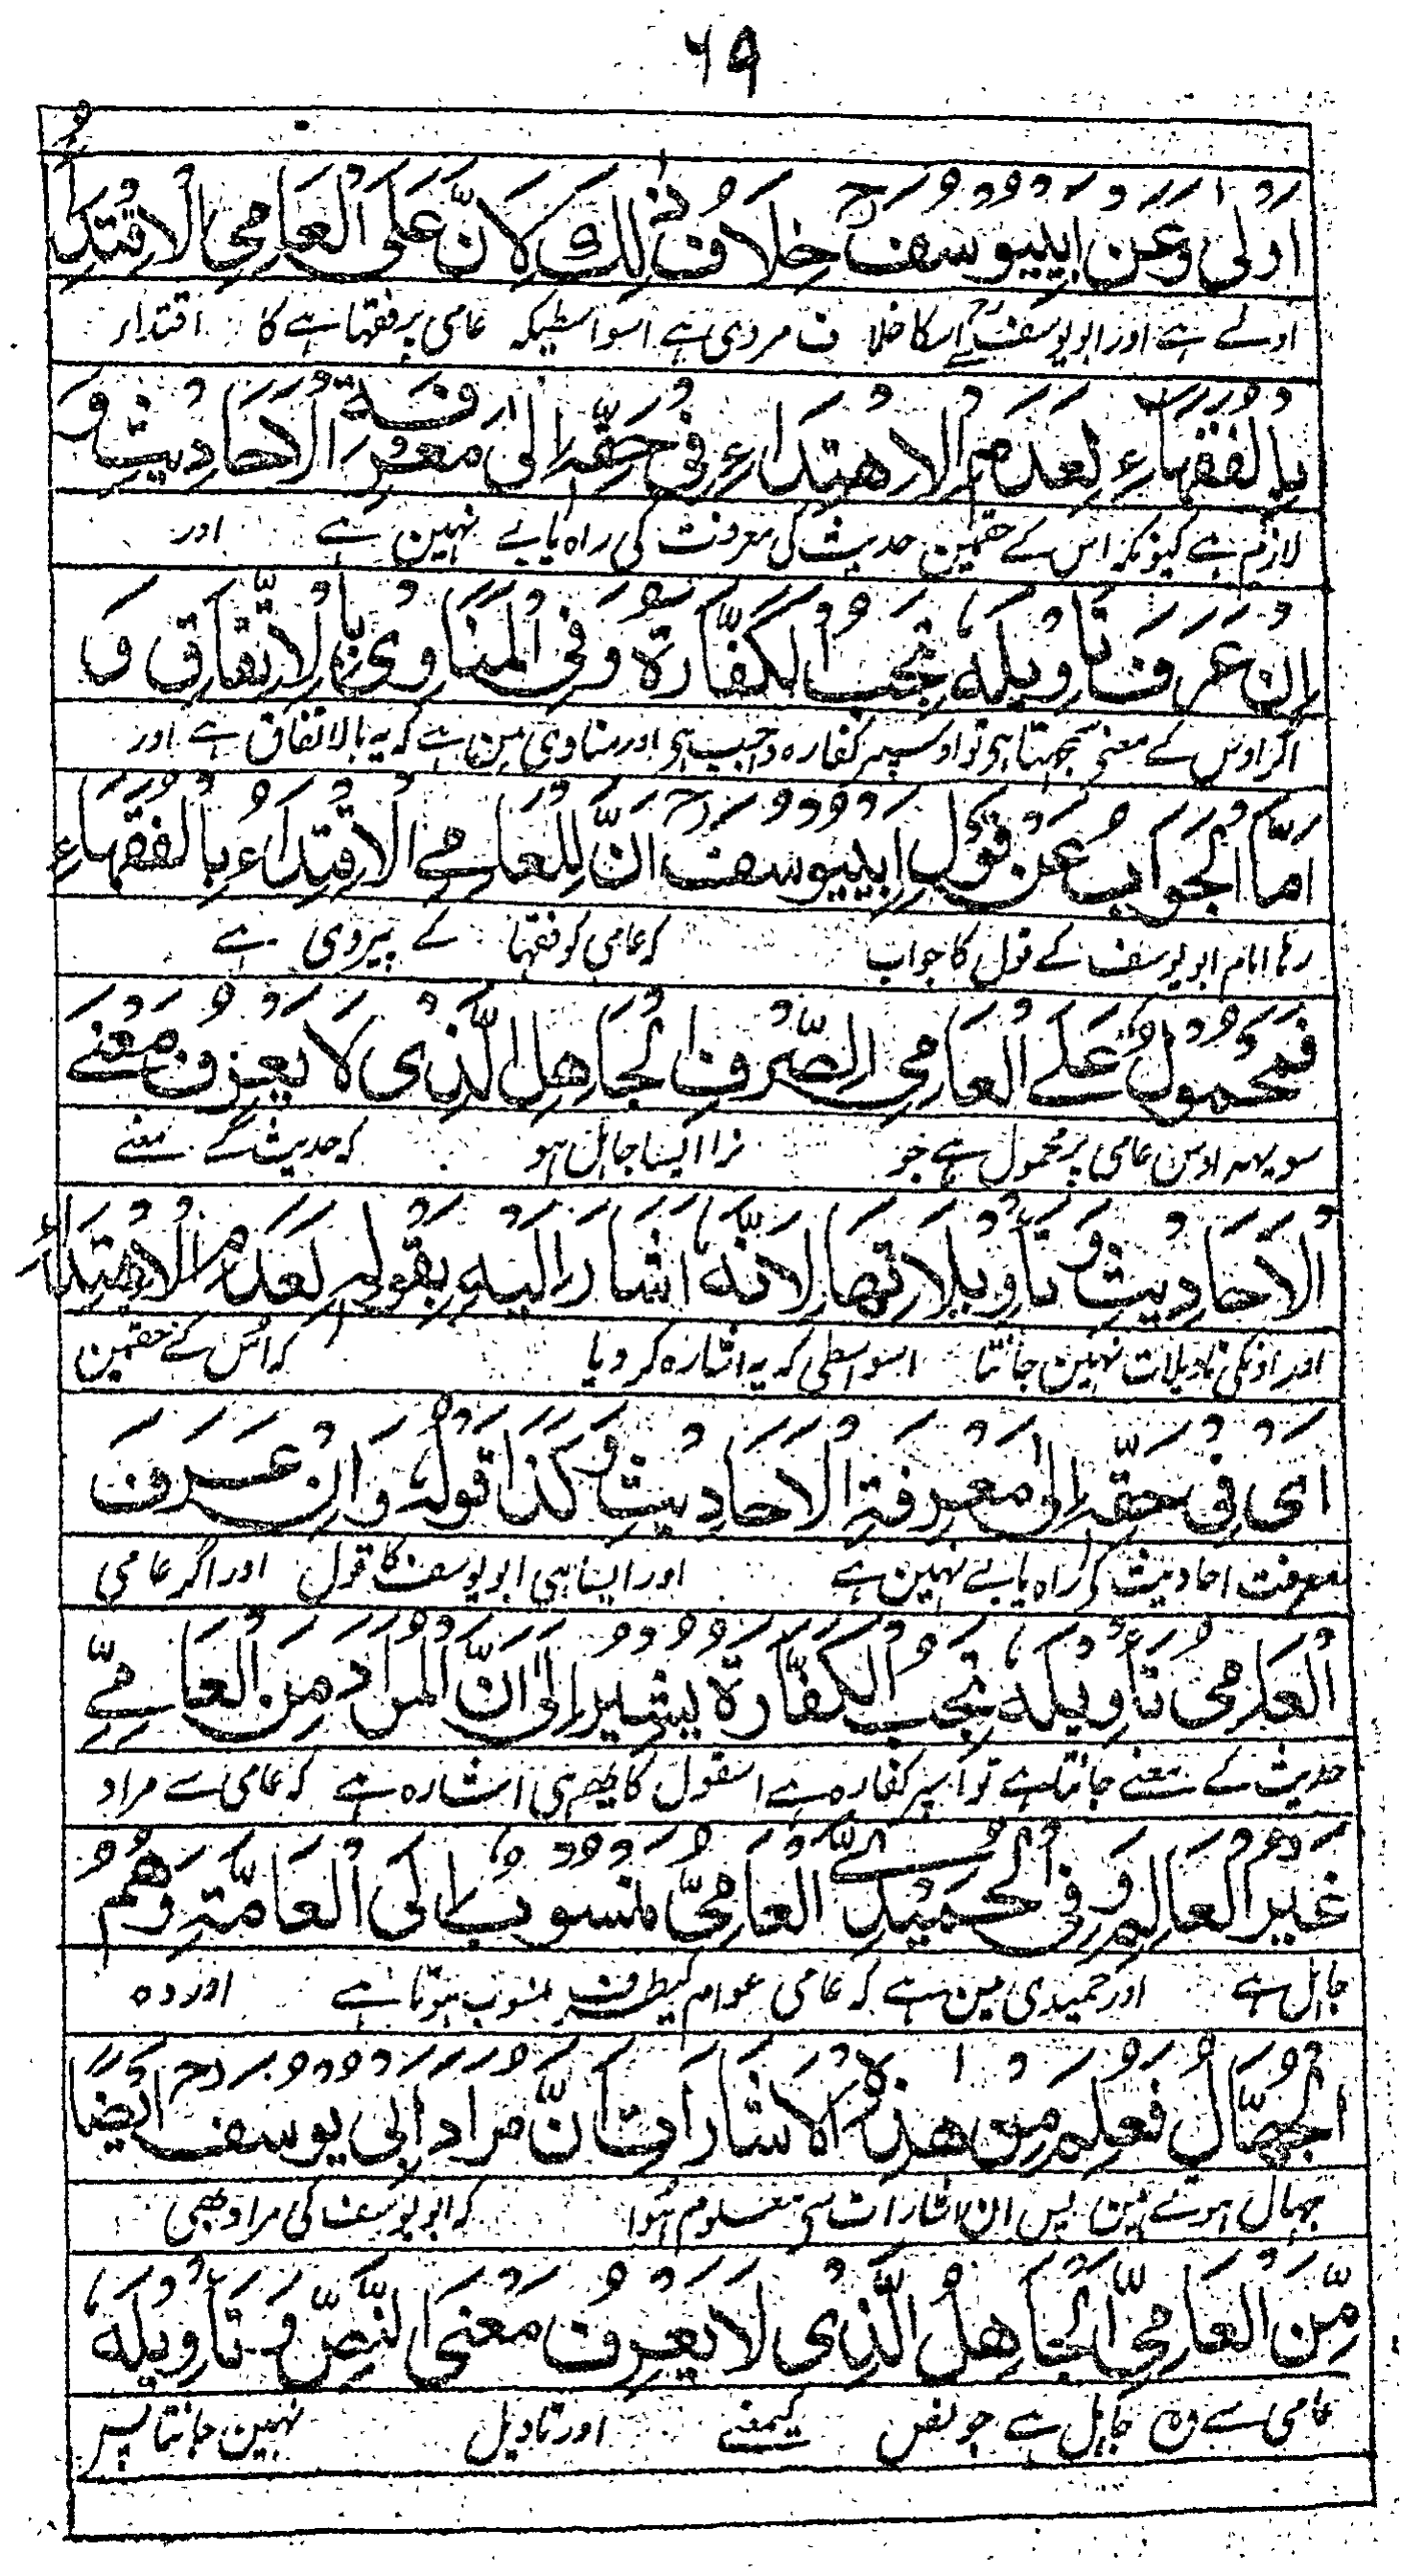 ۶۹
اَوْلٰى وَعَنْ اَبِيْيُوْسُفَ ؒ خِلَافُ ذٰلِكَ لِاَنَّ عَلَى الْعَامِيِّ الْاِقْتِدَاءُ
اولے ہے اور ابو یوسف ؒ سے اسکا خلاف مروی ہے اسواسطیکہ عامی پر فقہا ہے کا اقتداء
بِالْفُقَهَاءِ لِعَدَمِ الْاِهْتِدَاءِ فِيْ حَقِّهٖ اِلٰى مَعْرِفَةِ الْاَحَادِيْثِ وَ
لازم ہے کیونکہ اس کے حقمین حدیث کی معرفت کی راہ یابے نہین ہے اور
اِنْ عَرَفَ تَاْوِيْلَهٗ تَجِبُ الْكَفَّارَةُ وَفِي الْمُنَاوِيْ بِالْاِتِّفَاقِ وَ
اگر اوس کے معنی سمجھتا ہی تو اوسپر کفارہ واجب ہی اور مناوی مین ہے کہ یہ بالاتفاق ہے اور
اَمَّا الْجَوَابُ عَنْ قَوْلِ اَبِيْيُوْسُفَ ؒ اَنَّ لِلْعَامِيِّ الْاِقْتِدَاءُ بِالْفُقَهَاءِ
رہا امام ابو یوسف کے قول کا جواب کہ عامی کو فقہا کے پیروی ہے
فَمَحْمُوْلٌ عَلَى الْعَامِيِّ الصِّرْفِ الْجَاهِلِ الَّذِيْ لَا يَعْرِفُ مَعْنَے
سو یہہ اوس عامی پر محمول ہے جو نرا ایسا جاہل ہو کہ حدیث کے معنے
الْاَحَادِيْثِ وَتَاْوِيْلَاتِهَا لِاَنَّهٗ اَشَارَ اِلَيْهِ بِقَوْلِهٖ لِعَدَمِ الْاِهْتِدَاءِ
اور اونکی تاویلات نہین جانتا اسواسطی کہ یہ اشارہ کر دیا کہ اُس کے حقمین
اَيْ فِيْ حَقِّهٖ اِلٰى مَعْرِفَةِ الْاَحَادِيْثِ وَكَذَا قَوْلُهٗ وَاِنْ عَرَفَ
معرفت احادیث کی راہ یابے نہین ہے اور ایسا ہی ابو یوسف کا قول اور اگر عامی
الْعَامِيُّ تَاْوِيْلَهٗ تَجِبُ الْكَفَّارَةُ يُشِيْرُ اِلٰى اَنَّ الْمُرَادَ مِنَ الْعَامِيِّ
حدیث کے معنے جانتا ہے تو اُسپر کفارہ ہے اسقول کا یہی اشارہ ہے کہ عامی سے مراد
غَيْرُ الْعَالِمِ وَفِي الْحُمَيْدِيْ اَلْعَامِيُّ مَنْسُوْبٌ اِلَى الْعَامَّةِ وَهُمُ
جاہل ہے اور حمیدی مین ہے کہ عامی عوام کیطرف منسوب ہوتا ہے اور وہ
الْجُهَّالُ فَعُلِمَ مِنْ هٰذِهِ الْاِشَارَاتِ اَنَّ مُرَادَ اَبِيْ يُوْسُفَ ؒ اَيْضًا
جہال ہوتے ہین پس ان اشارات سے معلوم ہوا کہ ابو یوسف کی مراد بھی
مِنَ الْعَامِيِّ الْجَاهِلُ الَّذِيْ لَا يَعْرِفُ مَعْنَى النَّصِّ وَتَاْوِيْلَهٗ
عامی سے وہ جاہل ہے جو نص کیمعنے اور تاویل نہین جانتا پس